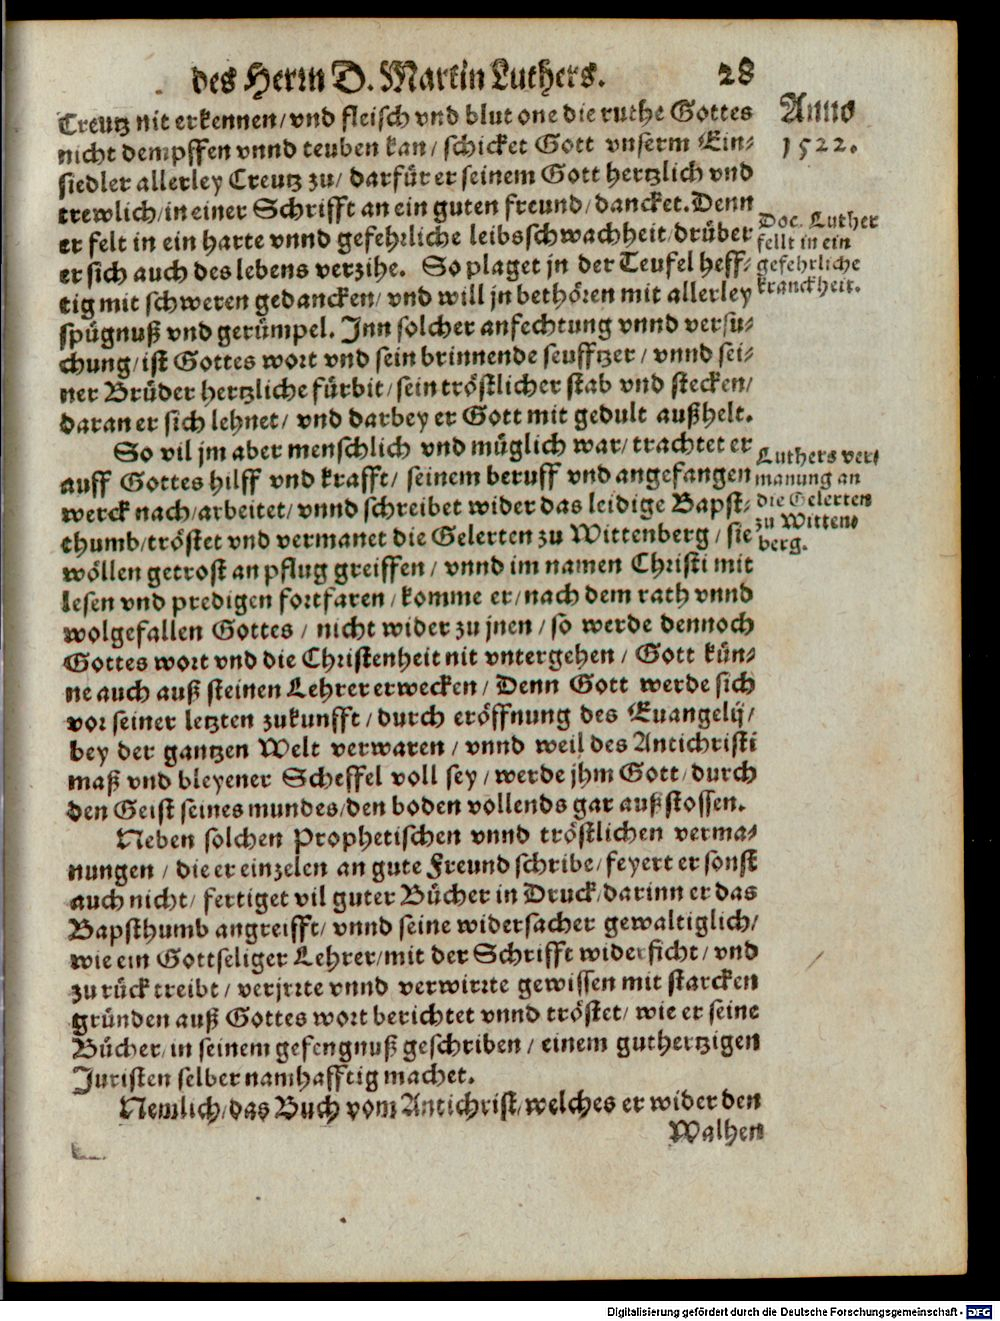 des Herrn D. Martin Luthers. 28
Anno
1522.
Creutz nit erkennen/ vnd fleisch vnd blut one die ruthe Gottes
nicht dempffen vnnd teuben kan/ schicket Gott vnserm Ein-
siedler allerley Creutz zu/ darfür er seinem Gott hertzlich vnd
trewlich/ in einer Schrifft an ein guten freund/ dancket. Denn
er felt in ein harte vnnd gefehrliche leibsschwachheit/ drüber
er sich auch des lebens verzihe. So plaget jn der Teufel heff-
tig mit schweren gedancken/ vnd will jn bethören mit allerley
spügnuß vnd gerümpel. Inn solcher anfechtung vnnd versu-
chung/ ist Gottes wort vnd sein brinnende seufftzer/ vnnd sei-
ner Brüder hertzliche fürbit/ sein tröstlicher stab vnd stecken/
daran er sich lehnet/ vnd darbey er Gott mit gedult außhelt.
Doc. Luther
fellt in ein
gefehrliche
kranckheit.
So vil jm aber menschlich vnd müglich war/ trachtet er
auff Gottes hilff vnd krafft/ seinem beruff vnd angefangen
werck nach/ arbeitet/ vnnd schreibet wider das leidige Bapst-
thumb/ tröstet vnd vermanet die Gelerten zu Wittenberg/ sie
wöllen getrost an pflug greiffen/ vnnd im namen Christi mit
lesen vnd predigen fortfaren/ komme er/ nach dem rath vnnd
wolgefallen Gottes/ nicht wider zu jnen/ so werde dennoch
Gottes wort vnd die Christenheit nit vntergehen/ Gott kün-
ne auch auß steinen Lehrer erwecken/ Denn Gott werde sich
vor seiner letzten zukunfft/ durch eröffnung des Euangelij/
bey der gantzen Welt verwaren/ vnnd weil des Antichristi
maß vnd bleyener Scheffel voll sey/ werde jhm Gott/ durch
den Geist seines mundes/ den boden vollends gar auß stossen.
Luthers ver-
manung an
die Gelerten
zu Witten-
berg.
Neben solchen Prophetischen vnnd tröstlichen verma-
nungen/ die er einzelen an gute Freund schribe/ feyert er sonst
auch nicht/ fertiget vil guter Bücher in Druck/ darinn er das
Bapsthumb angreifft/ vnnd seine widersacher gewaltiglich/
wie ein Gottseliger Lehrer/ mit der Schrifft widerficht/ vnd
zu rück treibt/ verjrrte vnnd verwirrte gewissen mit starcken
gründen auß Gottes wort berichtet vnnd tröstet/ wie er seine
Bücher/ in seinem gefengnuß geschriben/ einem guthertzigen
Juristen selber namhafftig machet.
Nemlich/ das Buch vom Antichrist/ welches er wider den
Walhen
Digitalisierung gefördert durch die Deutsche Forschungsgemeinschaft - DFG